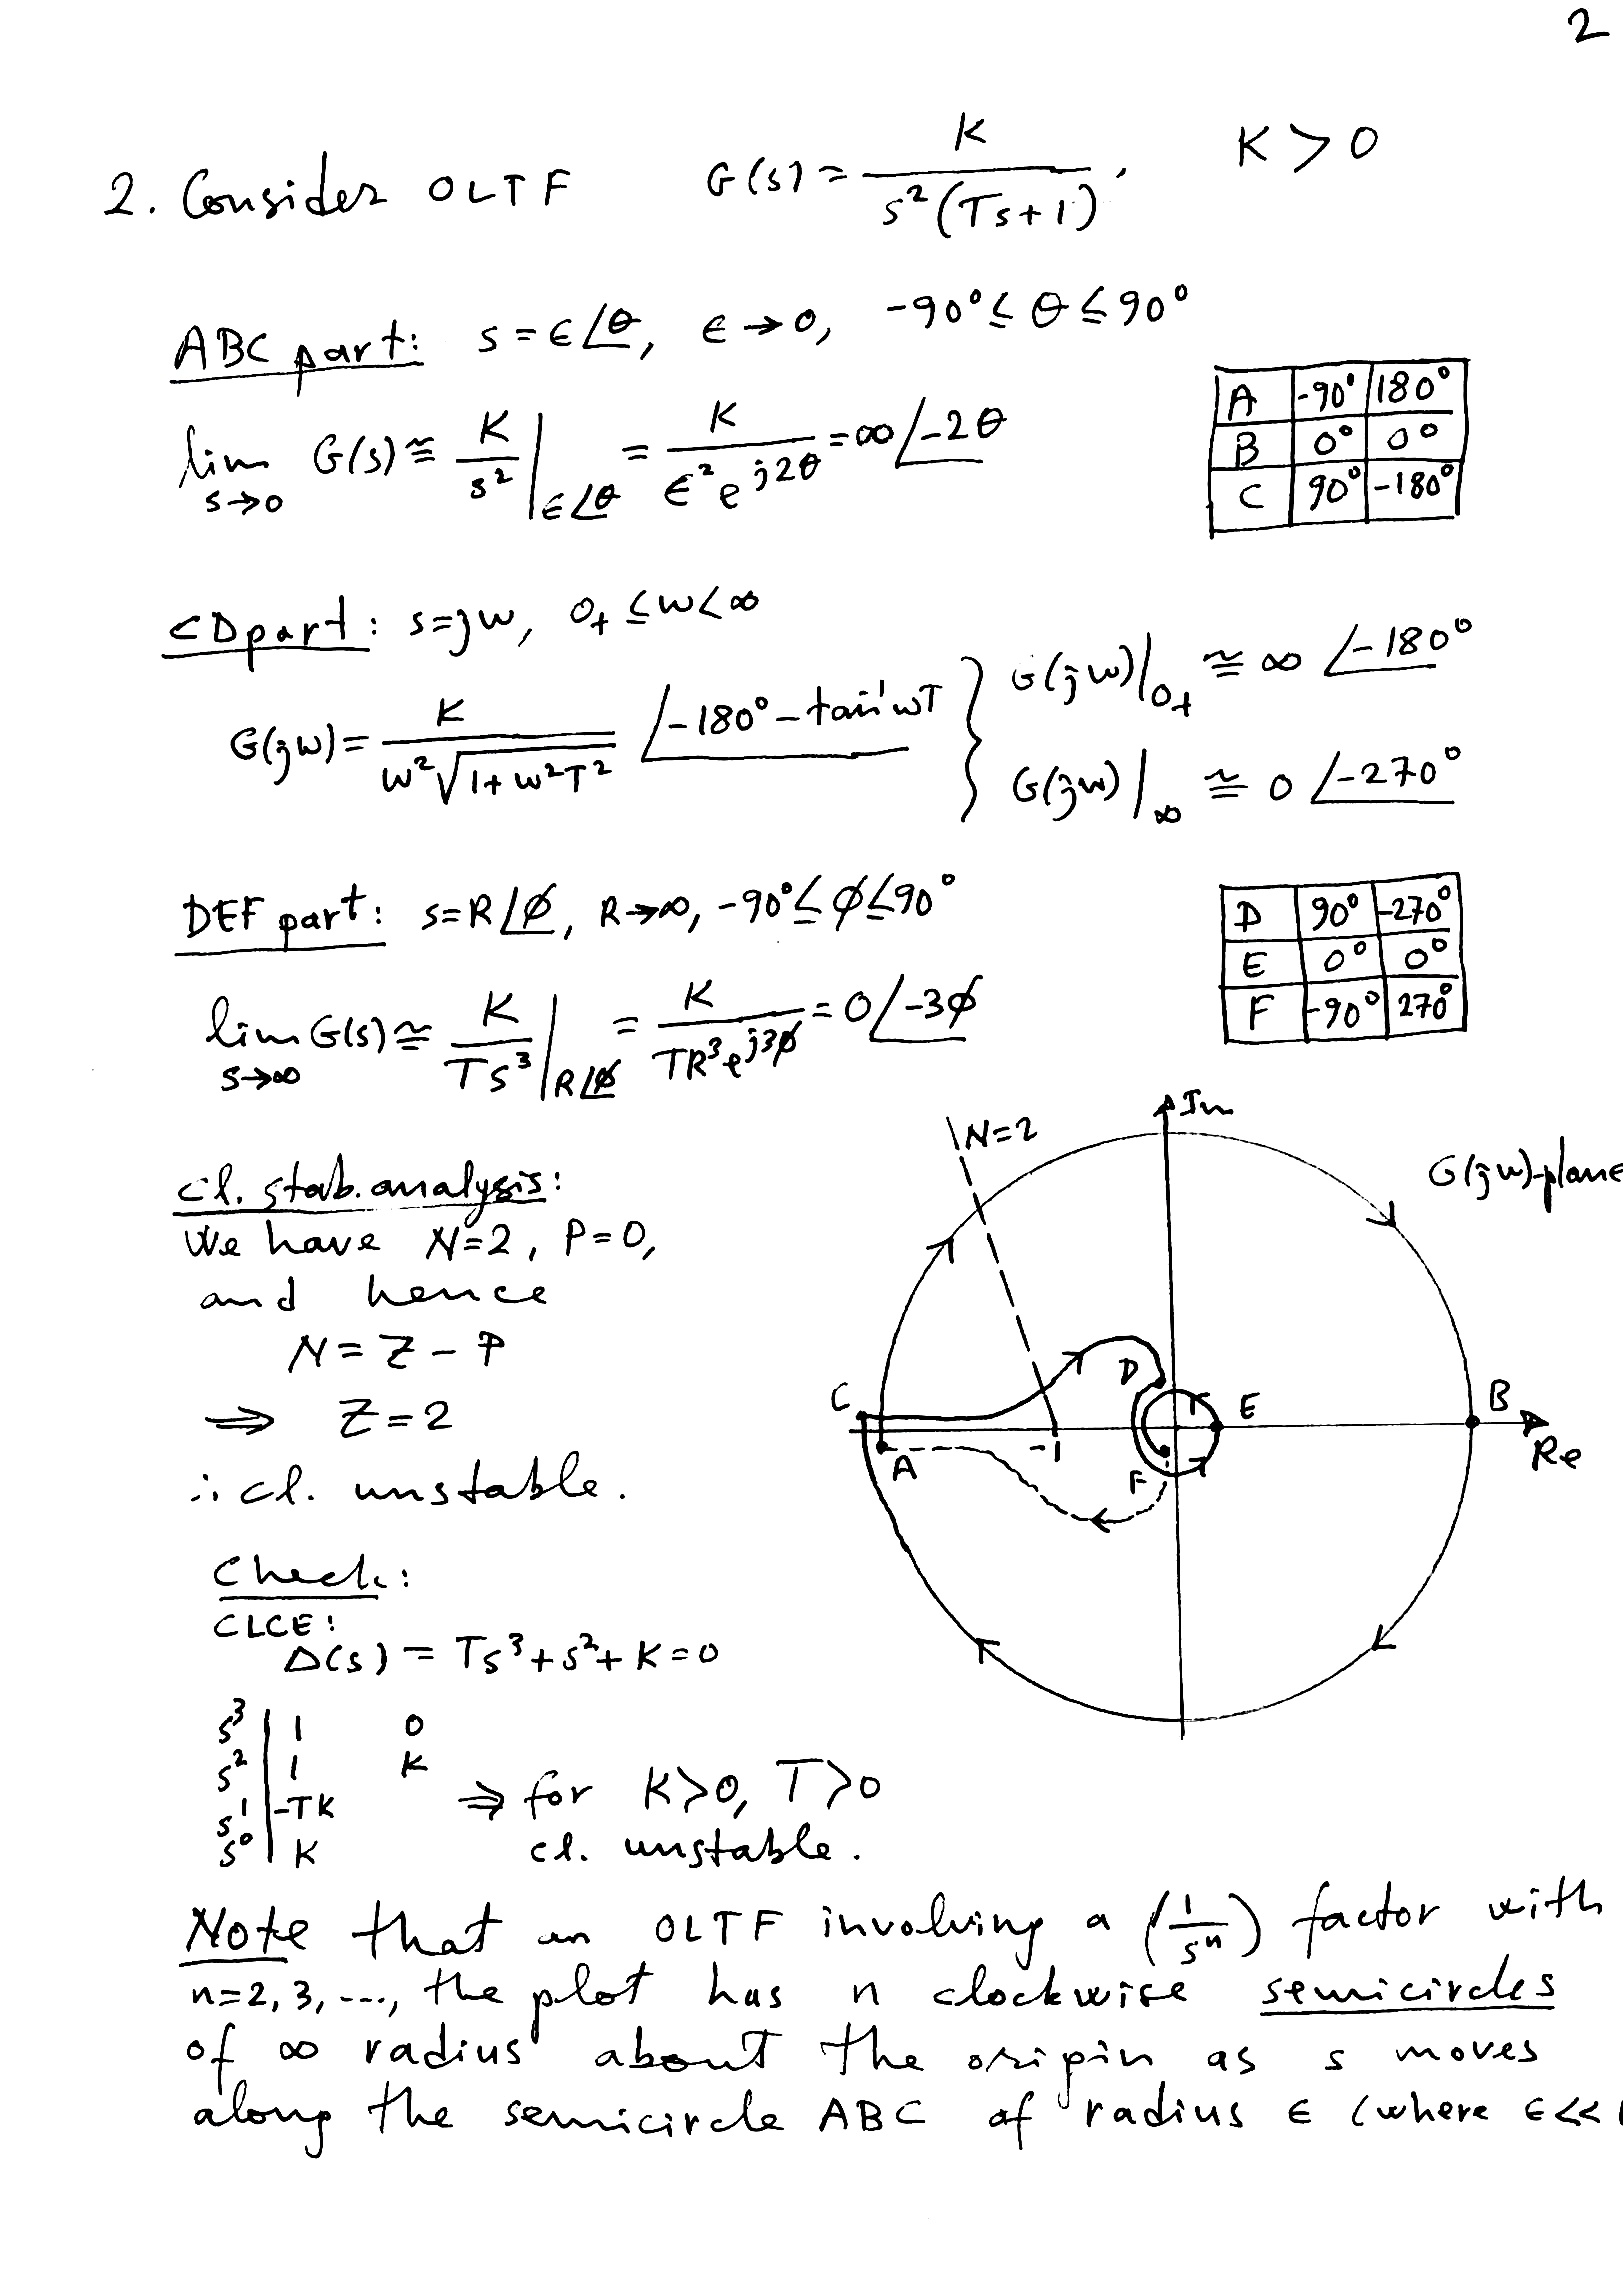 2
2. Consider OLTF G(s) = K / s²(Ts+1), K > 0
ABC part: s = ϵ∠θ, ϵ → 0, -90° ≤ θ ≤ 90°
lim s→0 G(s) ≅ K/s² |ϵ∠θ = K / ϵ²e^j2θ = ∞∠-2θ
A -90° 180°
B 0° 0°
C 90° -180°
CD part: s=jw, 0+ ≤ w < ∞
G(jw) = K / w²√(1+w²T²) ∠-180° - tan⁻¹wT } G(jw)|0+ ≅ ∞ ∠-180°
G(jw)|∞ ≅ 0 ∠-270°
DEF part: s=R∠ϕ, R→∞, -90° ≤ ϕ ≤ 90°
lim s→∞ G(s) ≅ K / Ts³ |R∠ϕ = K / TR³e^j3ϕ = 0∠-3ϕ
D 90° -270°
E 0° 0°
F -90° 270°
Cl. stab. analysis:
We have N=2, P=0,
and hence
N = Z - P
⇒ Z = 2
∴ cl. unstable.
N=2
Im
G(jw)-plane
C
D
E
B
A
-1
F
Re
Check:
CLCE:
Δ(s) = Ts³+s²+K=0
s³ | 1 0
s² | 1 K
s¹ | -TK
s⁰ | K
⇒ for K>0, T>0
cl. unstable.
Note that an OLTF involving a (1/sⁿ) factor with
n=2, 3, ..., the plot has n clockwise semicircles
of ∞ radius about the origin as s moves
along the semicircle ABC of radius ϵ (where ϵ<<